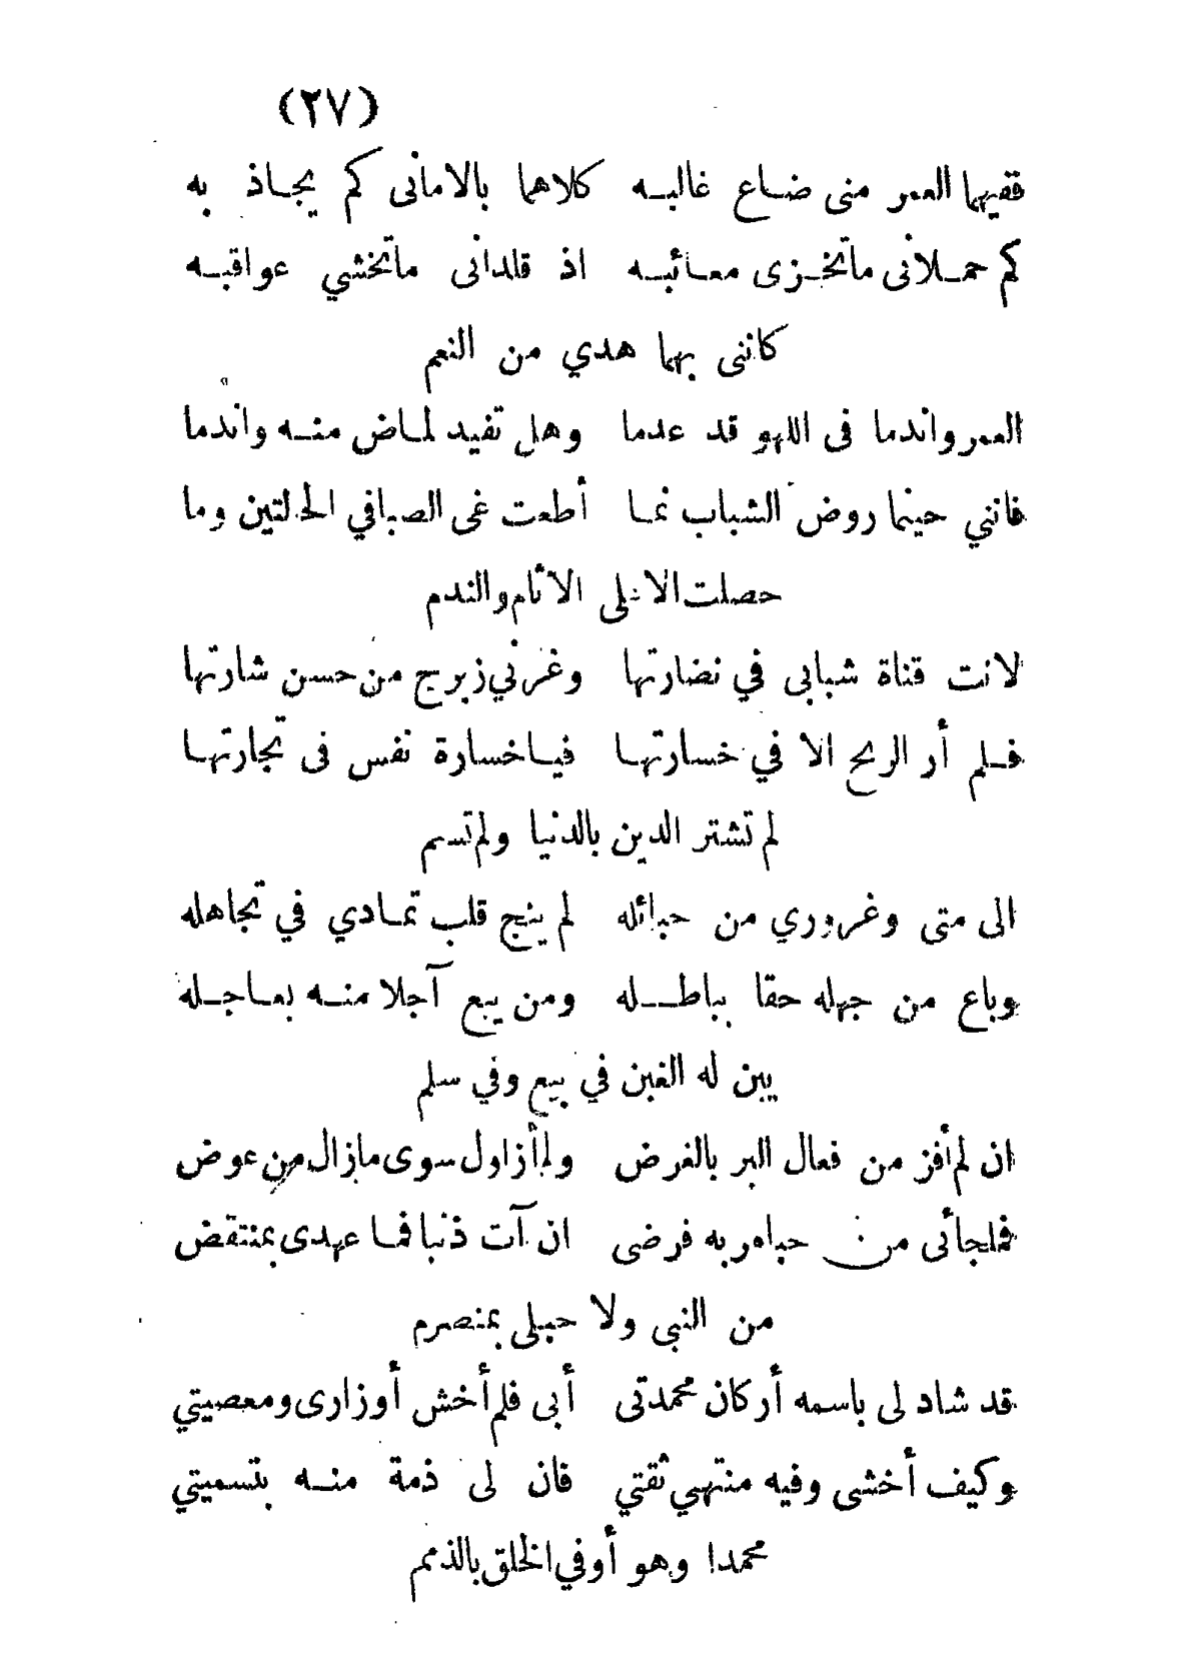 (٢٧)
ففيهما العمر منى ضاع غالبه كلاهما بالامانى كم يجاذ به
كم حملانى ماتخزى معائبه اذ قلدانى ماتخشي عواقبه
كاننى بهما هدي من النعم
العمر واندما فى اللهو قد عدما وهل تفيد لماض منه واندما
فانني حينما روض الشباب نما أطعت غى الصبا في الحالتين وما
حصلت الا على الآثام والندم
لانت قناة شبابى في نضارتها وغرني زبرج من حسن شارتها
فلم أر الربح الا في خسارتها فياخسارة نفس فى تجارتها
لم تشتر الدين بالدنيا ولم تسم
الى متى وغروري من حبائله لم ينج قلب تمادي في تجاهله
وباع من جهله حقا بباطله ومن يبع آجلا منه بعاجله
يبن له الغبن في بيع وفي سلم
ان لم أفز من فعال البر بالغرض ولم أزاول سوى مازال من عوض
فملجائى من حباه ربه فرضى ان آت ذنبا فما عهدى بمنتقض
من النبى ولا حبلى بمنصرم
قد شاد لى باسمه أركان محمدتى أبى فلم أخش أوزارى ومعصيتي
وكيف أخشى وفيه منتهي ثقتي فان لى ذمة منه بتسميتي
محمدا وهو أوفي الخلق بالذمم